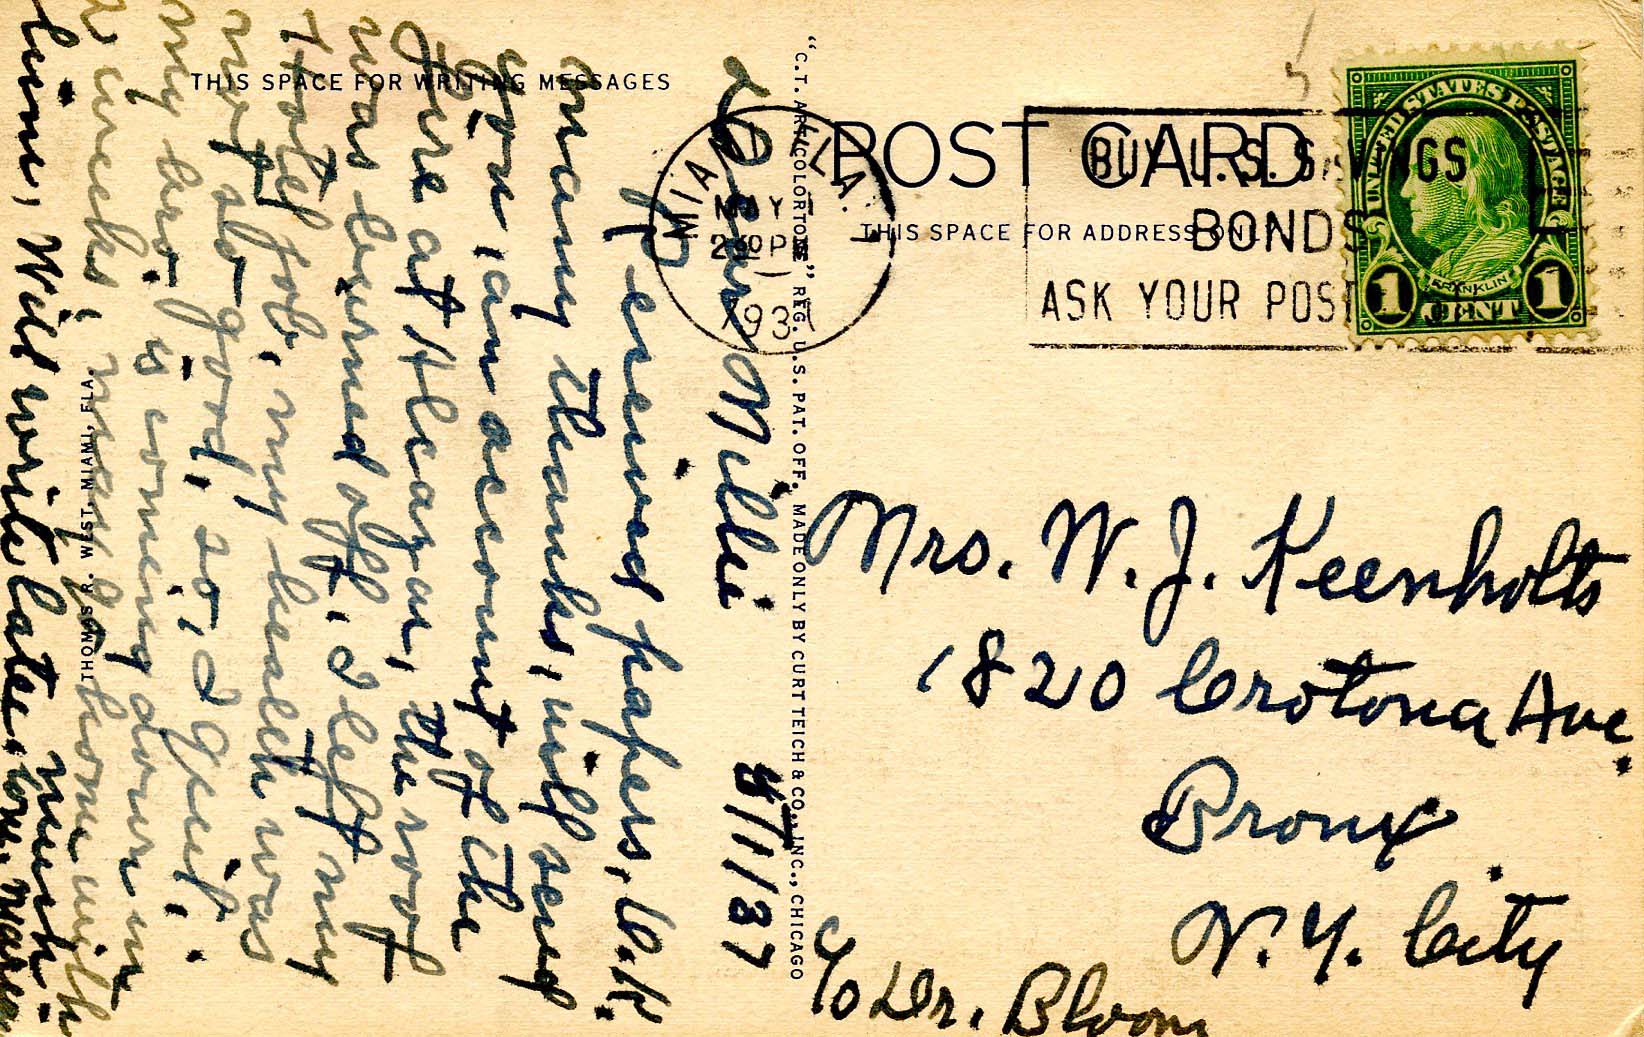 THIS SPACE FOR WRITING MESSAGES
POST CARD
THIS SPACE FOR ADDRESS ONLY
MIAMI, FLA.
MAY 1
2 30 PM
193
BUY U.S. SAVINGS
BONDS
ASK YOUR POST
UNITED STATES POSTAGE
FRANKLIN
1 CENT 1
5/1/37
Dear Millie
Received papers, O.K.
many thanks, will send
you, an account of the
fire at Alcazar, the roof
was burned off, I left my
Hotel job, my health was
not so good, so, I quit.
my bro. is coming down in
2 weeks, may go home with
him, Will write later. much
"C.T. ART-COLORTONE" REG. U.S. PAT. OFF. MADE ONLY BY CURT TEICH & CO., INC., CHICAGO
THOMAS R. WEST, MIAMI, FLA.
Mrs. W. J. Keenholts
1820 Crotona Ave.
Bronx
N.Y. City
c/o Dr. Bloom